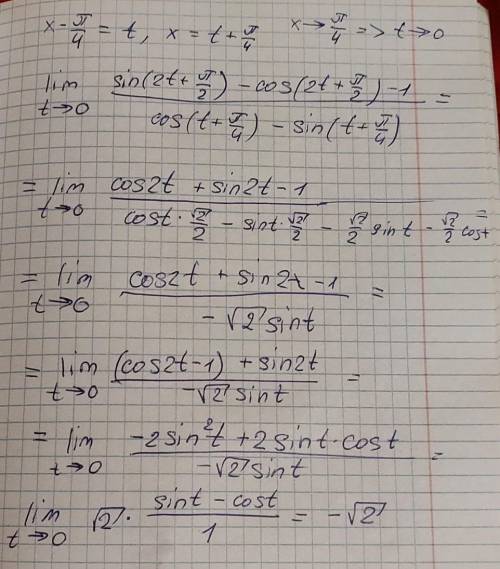 x - π/4 = t, x = t + π/4 x → π/4 => t → 0
lim t→0 (sin(2t + π/2) - cos(2t + π/2) - 1) / (cos(t + π/4) - sin(t + π/4)) =
= lim t→0 (cos2t + sin2t - 1) / (cost · √2/2 - sint · √2/2 - √2/2 sint - √2/2 cost) =
= lim t→0 (cos2t + sin2t - 1) / (-√2 sint) =
= lim t→0 ((cos2t - 1) + sin2t) / (-√2 sint) =
= lim t→0 (-2sin²t + 2sint · cost) / (-√2 sint) =
lim t→0 √2 · (sint - cost) / 1 = -√2